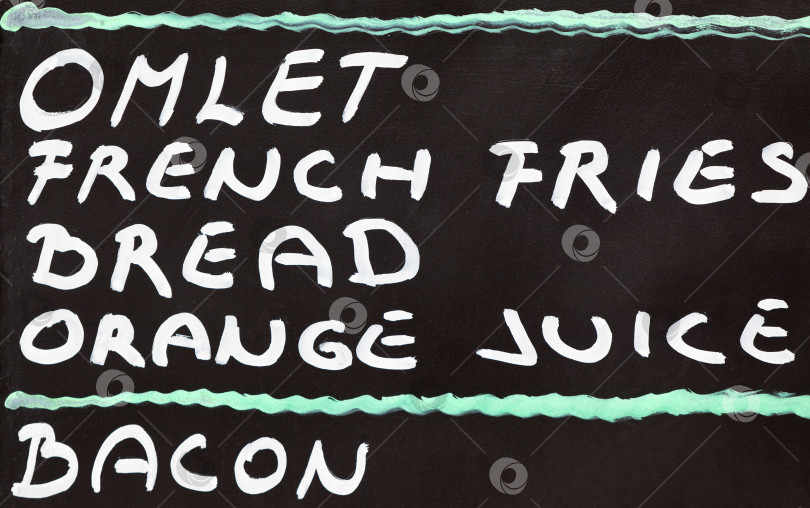 OMLET
FRENCH FRIES
BREAD
ORANGE JUICE
BACON